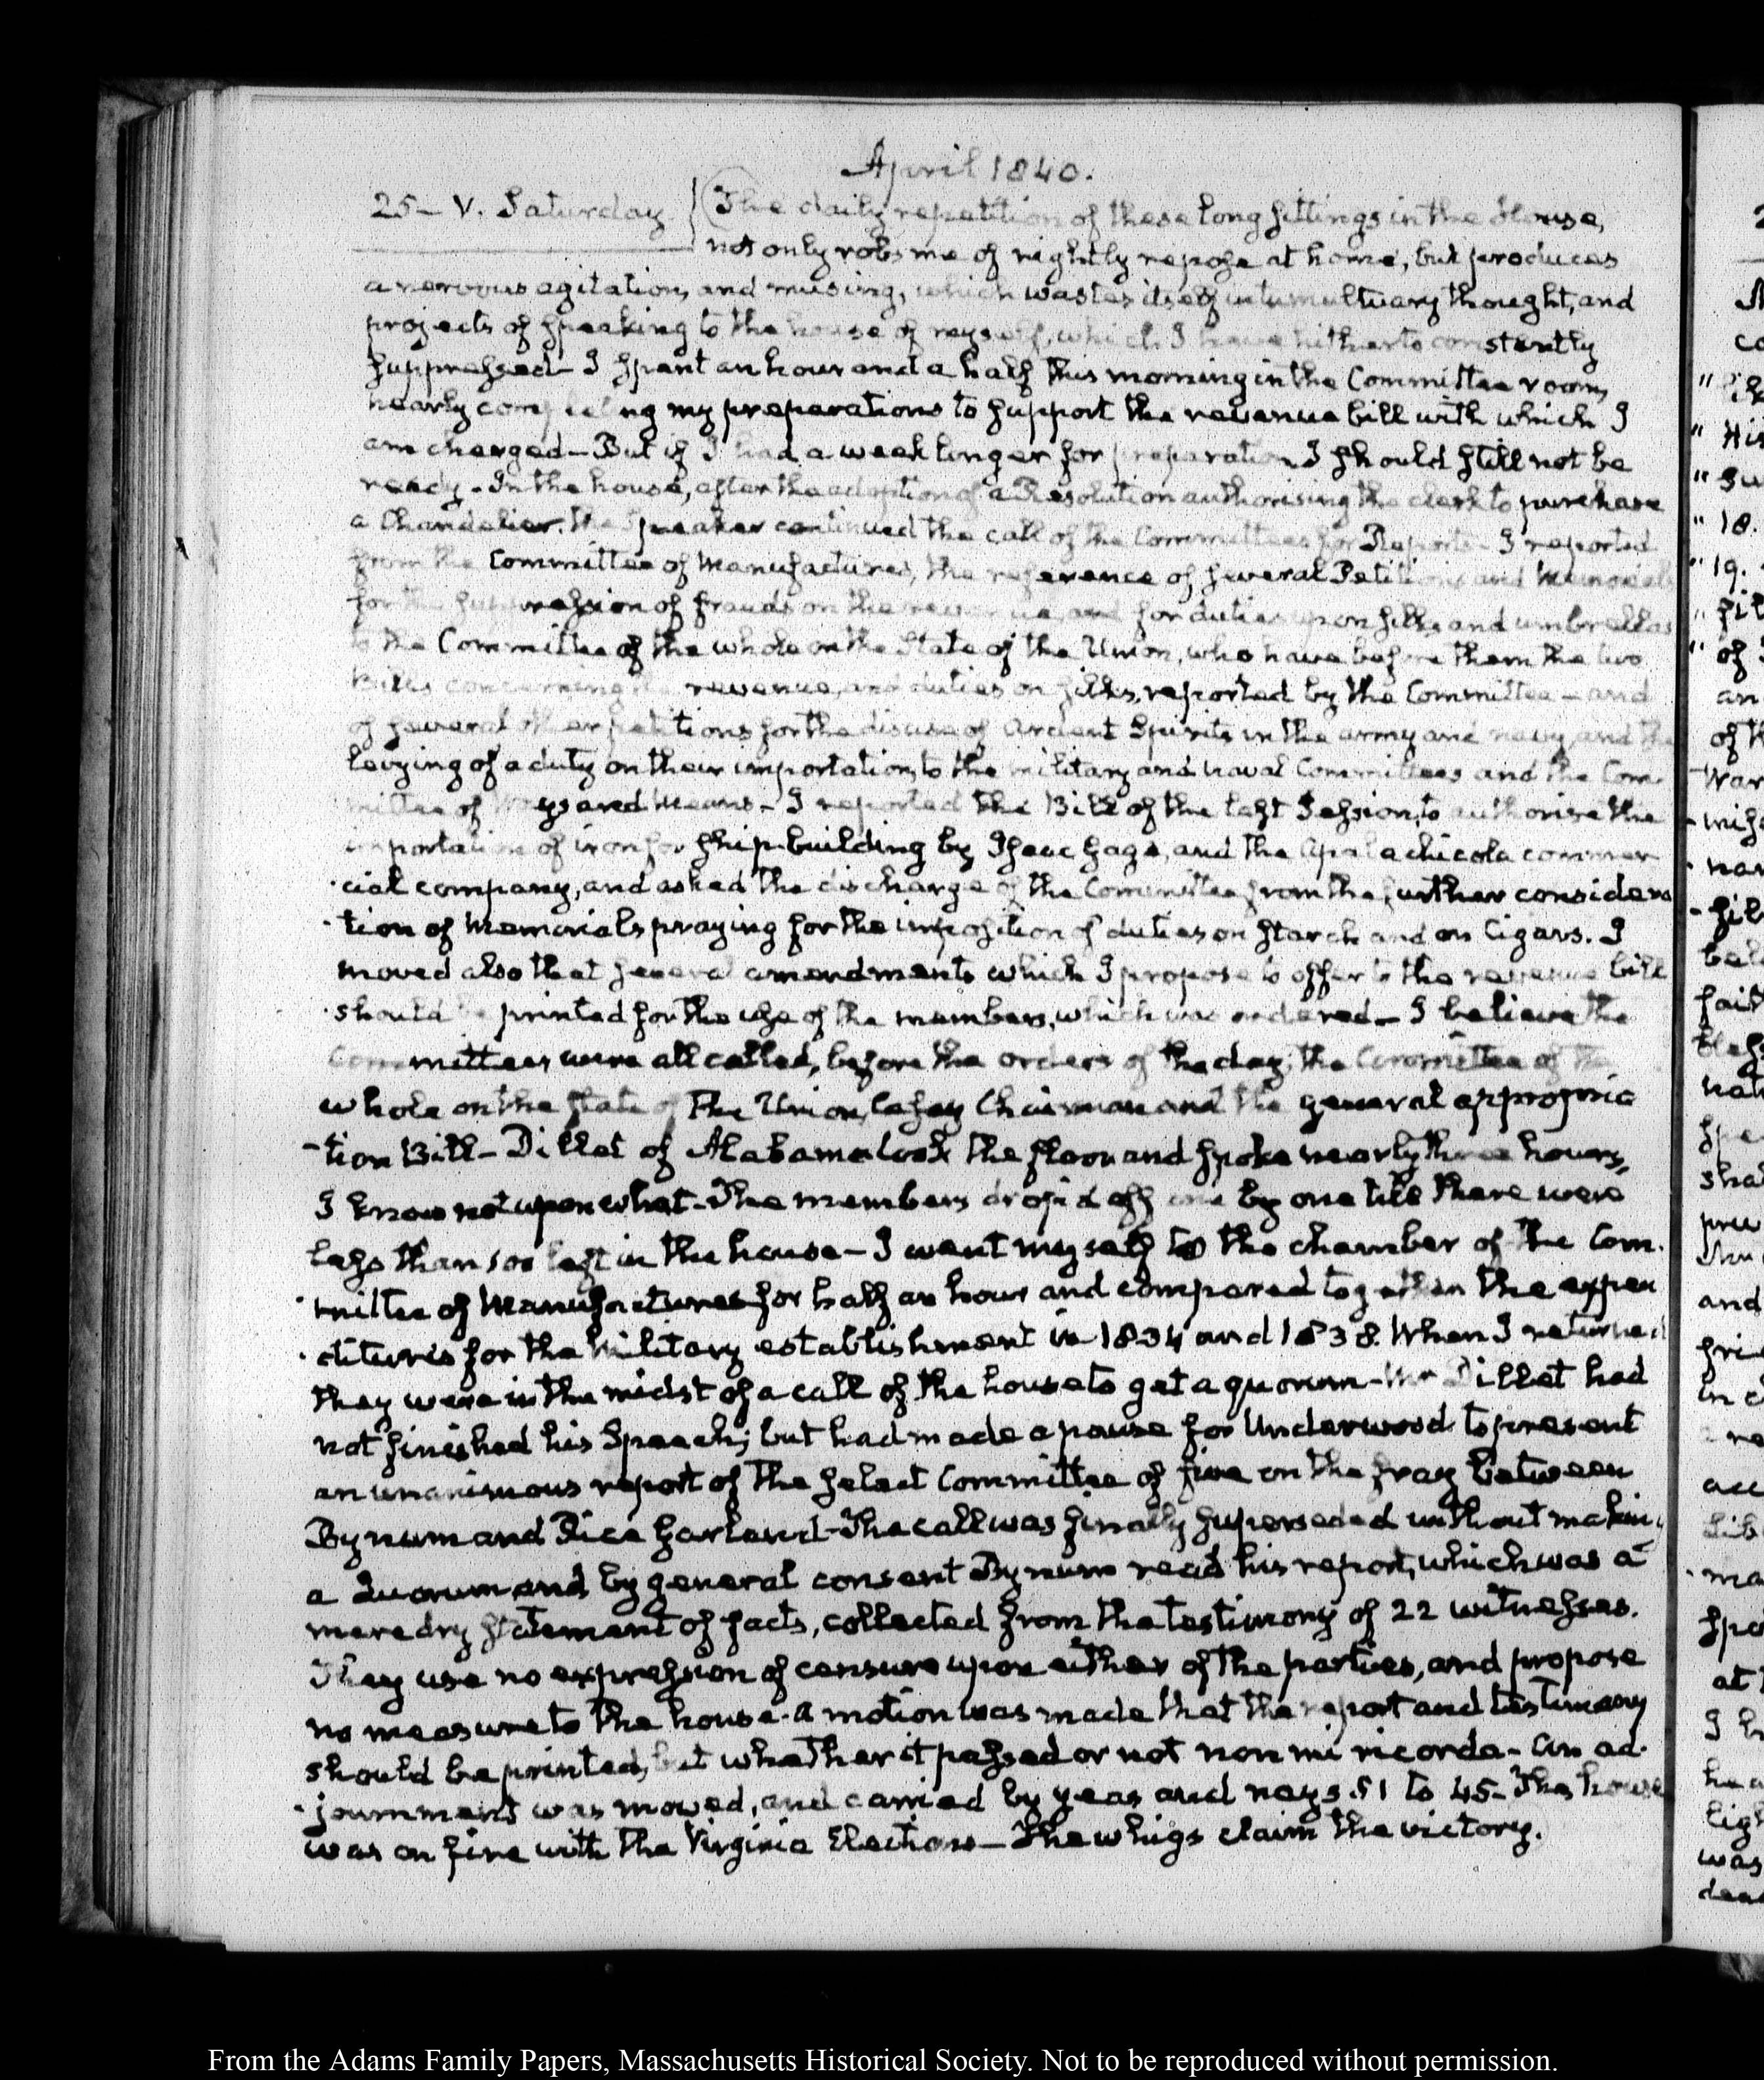 April 1840.
25 – V. Saturday. The daily repetition of these long sittings in the House,
not only robs me of nightly repose at home, but produces
a nervous agitation, and musing, which wastes itself in tumultuary thought, and
projects of speaking to the house of myself, which I have hitherto constantly
suppressed – I spent an hour and a half this morning in the Committee room,
nearly completing my preparations to support the revenue bill with which I
am charged – But if I had a week longer for preparation, I should still not be
ready – In the house, after the adoption of a Resolution authorising the clerk to purchase
a Chandelier. the Speaker continued the call of the Committees for Reports – I reported
from the Committee of Manufactures, the reference of several Petitions and Memorials
for the suppression of frauds on the revenue, and for duties upon silks and umbrellas
to the Committee of the whole on the State of the Union, who have before them the two
Bills concerning the revenue, and duties on silks, reported by the Committee – and
of several other petitions for the disuse of Ardent Spirits in the army and navy, and the
levying of a duty on their importation, to the military and naval Committees and the Com
mittee of Ways and Means – I reported the Bill of the last Session, to authorise the
importation of iron for ship-building by Isaac Gage, and the Apalachicola commer
cial company, and asked the discharge of the Committee from the further considera
tion of Memorials praying for the imposition of duties on starch and on Cigars. I
moved also that several amendments which I propose to offer to the revenue bill
should be printed for the use of the members, which was ordered – I believe the
Committees were all called, before the orders of the day; the Committee of the
whole on the state of the Union, Casey Chairman and the general appropria
-tion Bill – Dillet of Alabama took the floor and spoke nearly three hours,
I know not upon what – The members drop'd off one by one till there were
less than 100 left in the house – I went myself to the chamber of the Com.
mittee of Manufactures for half an hour and compared together the expen
ditures for the military establishment in 1834 and 1838. When I returned
they were in the midst of a call of the house to get a quorum – Mr Dillet had
not finished his Speech; but had made a pause for Underwood to present
an unanimous report of the select Committee of five on the fray between
Bynum and Rice Garland – The call was finally superseded without making
a Quorum and by general consent Bynum read his report, which was a
mere dry statement of facts, collected from the testimony of 22 witnesses.
They use no expression of censure upon either of the parties, and propose
no measure to the house. A motion was made that the report and testimony
should be printed, but whether it passed or not non mi ricorda – An ad
journment was moved, and carried by yeas and nays. 51 to 45 – The house
was on fire with the Virginia Elections – The whigs claim the victory.
From the Adams Family Papers, Massachusetts Historical Society. Not to be reproduced without permission.